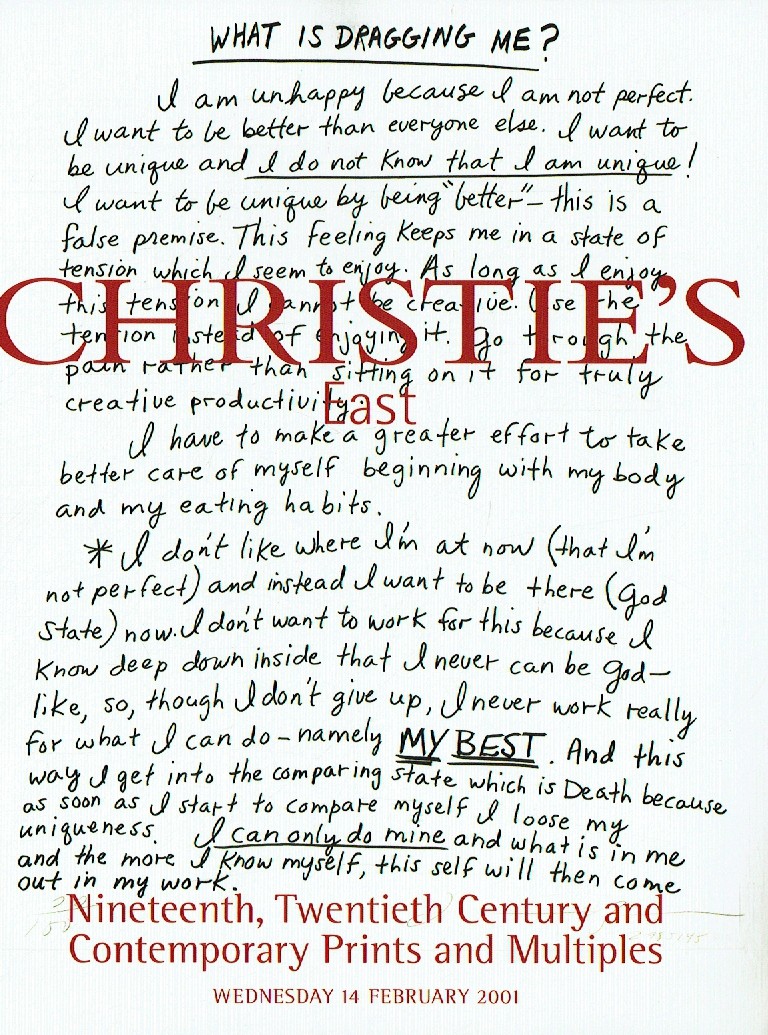 WHAT IS DRAGGING ME?
I am unhappy because I am not perfect.
I want to be better than everyone else. I want to
be unique and I do not know that I am unique!
I want to be unique by being "better" – this is a
false premise. This feeling keeps me in a state of
tension which I seem to enjoy. As long as I enjoy
this tension I cannot be creative. Use the
CHRISTIE'S
tension instead of enjoying it. Go through the
pain rather than sitting on it for truly
creative productivity.
East
I have to make a greater effort to take
better care of myself beginning with my body
and my eating habits.
* I don't like where I'm at now (that I'm
not perfect) and instead I want to be there (God
State) now. I don't want to work for this because I
know deep down inside that I never can be God–
like, so, though I don't give up, I never work really
for what I can do – namely MY BEST. And this
way I get into the comparing state which is Death because
as soon as I start to compare myself I loose my
uniqueness. I can only do mine and what is in me
and the more I know myself, this self will then come
out in my work.
Nineteenth, Twentieth Century and
Contemporary Prints and Multiples
WEDNESDAY 14 FEBRUARY 2001